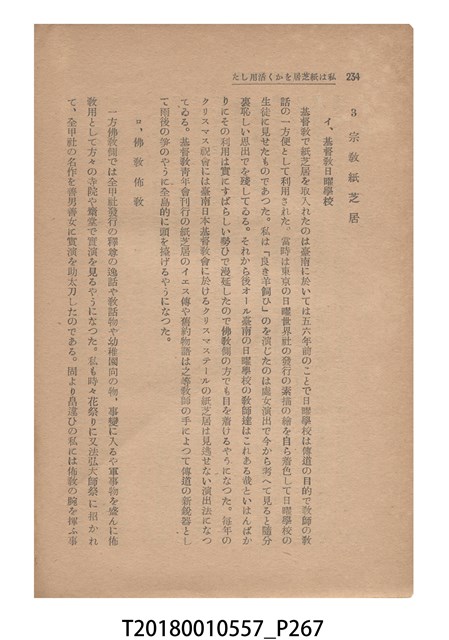 234
私は紙芝居をかく活用した
3 宗敎紙芝居
イ、基督敎日曜學校
基督敎で紙芝居を取入れたのは臺南に於いては五六年前のことで日曜學校は傳道の目的で敎師の敎
話の一方便として利用された。當時は東京の日曜世界社の發行の素描の繪を自ら着色して日曜學校の
生徒に見せたものであつた。私は「良き羊飼ひ」のを演じたのは處女演出で今から考へて見ると隨分
裏恥しい思出でを殘してゐる。それから後オール臺南の日曜學校の敎師達はこれある哉といはんばか
りにその利用は實にすばらしい勢ひで漫延したので佛敎側の方でも目を着けるやうになつた。毎年の
クリスマス祝會には臺南日本基督敎會に於けるクリスマステールの紙芝居は見逃せない演出法になつ
てゐる。基督敎靑年會刊行の紙芝居のイエス傳や舊約物語は之等敎師の手によつて傳道の新銳器とし
て雨後の筍のやうに全島的に頭を擡げるやうになつた。
ロ、佛敎佈敎
一方佛敎側では全甲社發行の釋尊の逸話や敎話物や幼稚園向の物、事變に入るや軍事物を盛んに佈
敎用として方々の寺院や齋堂で實演を見るやうになつた。私も時々花祭りに又法弘大師祭に招かれ
て、全甲社の名作を善男善女に實演を助太刀したのである。固より畠違ひの私には佈敎の腕を揮ふ事
T20180010557_P267